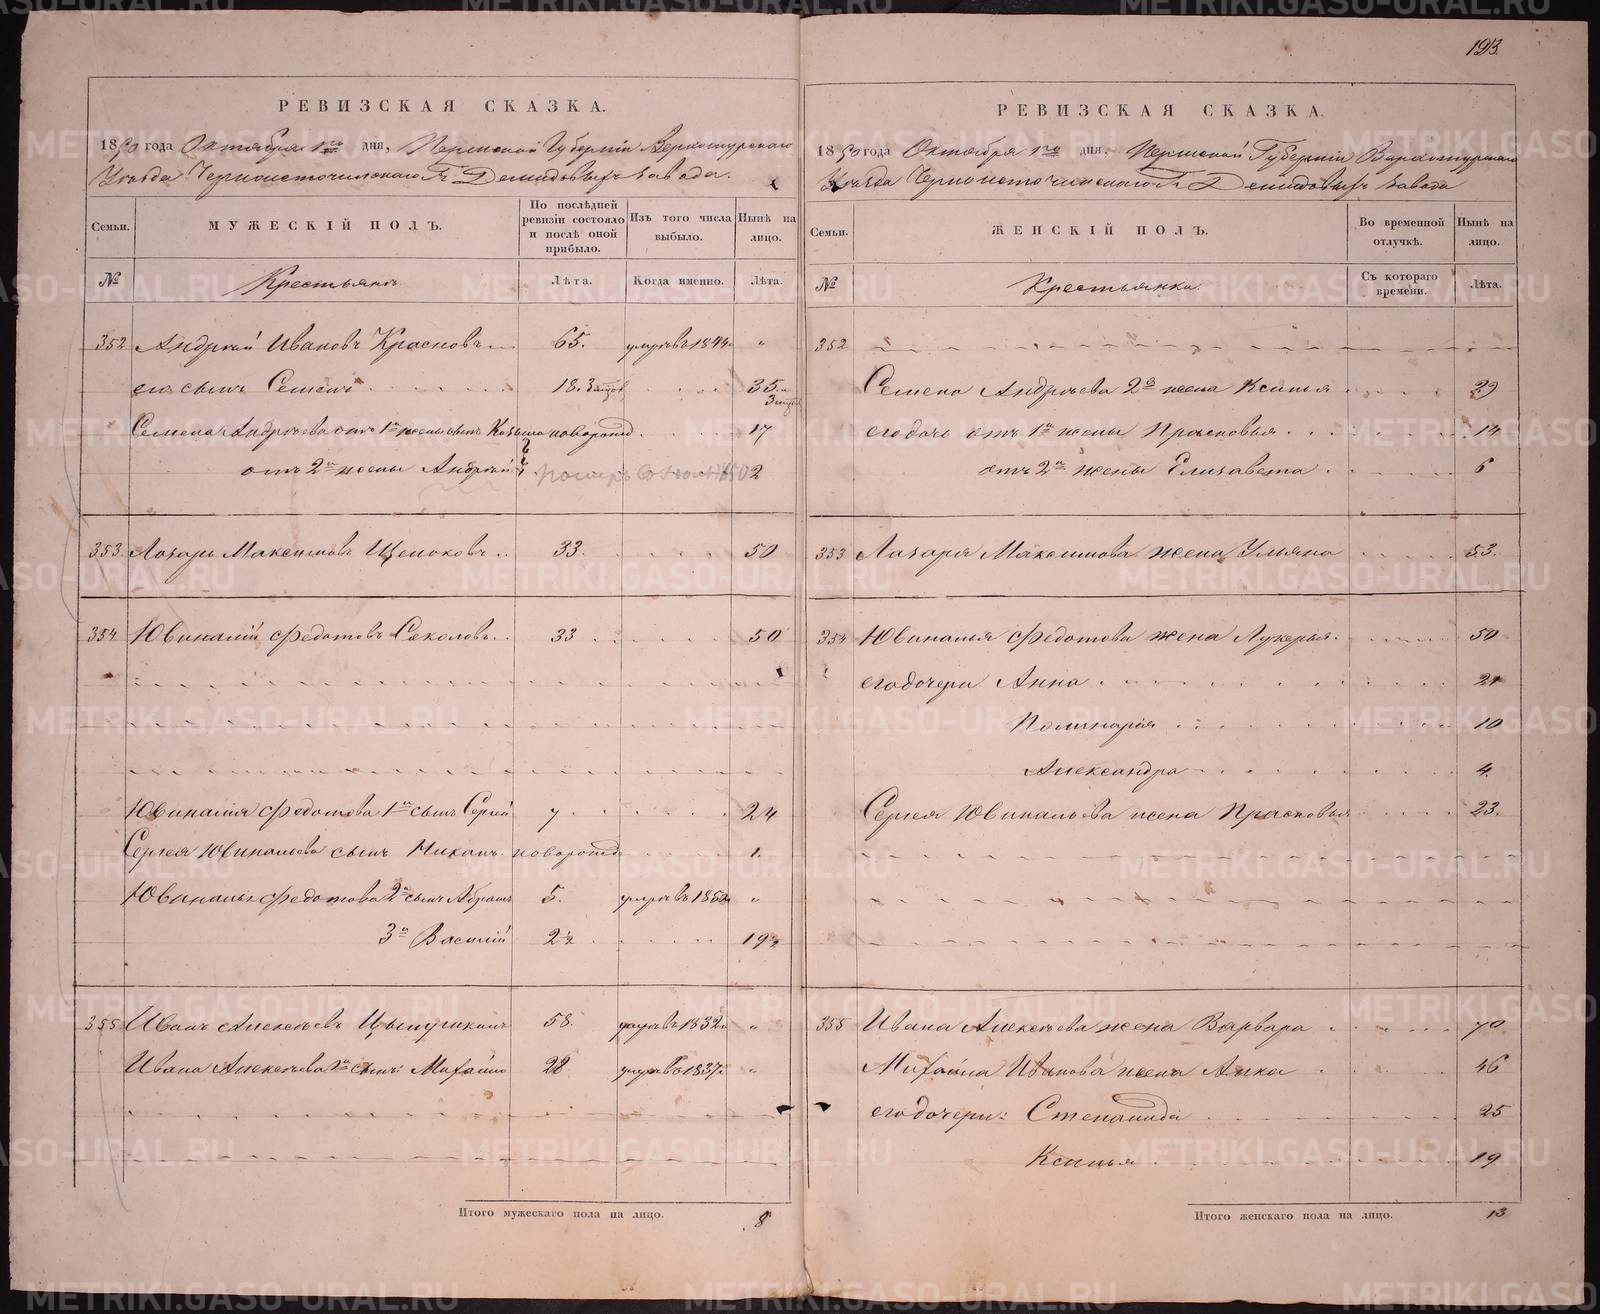 193.
РЕВИЗСКАЯ СКАЗКА.
1850 года Октября 1го дня, Пермской Губерніи Верхотурскаго
Уѣзда Черноисточинскаго Гг Демидовыхъ завода.
Семьи. МУЖЕСКІЙ ПОЛЪ. По послѣдней ревизіи состояло и послѣ оной прибыло. Изъ того числа выбыло. Нынѣ на лицо.
№ Крестьянъ Лѣта. Когда именно. Лѣта.
352 Андрей Ивановъ Красновъ 65. умреъ въ 1844 „
его сынъ Семенъ 18. 35
Семена Андреева отъ 1й жены сынъ Козьма новорожд 17
отъ 2й жены Андрей 2
353. Лазарь Максимовъ Щепоковъ 33. 50
354. Ювиналій Федотовъ Соколовъ 33 50
Ювиналія Федотова 1й сынъ Сергей 7 24
Сергея Ювинальева сынъ новорожд 1.
Ювиналья Федотова 2й сынъ Абрамъ 5. умреъ въ 1850 „
3й Василій 2½ 19½
355 Иванъ Алексеевъ 58. умреъ въ 1832 „
Ивана Алексеева сынъ Михайло 28 умреъ въ 1837 „
Итого мужескаго пола на лицо. 8
РЕВИЗСКАЯ СКАЗКА.
1850 года Октября 1го дня, Пермской Губерніи Верхотурскаго
Уѣзда Черноисточинскаго Гг Демидовыхъ завода
Семьи. ЖЕНСКІЙ ПОЛЪ. Во временной отлучкѣ. Нынѣ на лицо.
№ Крестьянки. Съ котораго времени. Лѣта.
352
Семена Андреева 2я жена Ксенья 29
его дочь отъ 1й жены Прасковья 14
отъ 2й жены Елизавета 6
353 Лазаря Максимова жена Ульяна 53.
354 Ювиналья Федотова жена Лукерья 50
его дочери Анна 21
Полинарія 10
Александра 4.
Сергея Ювинальева жена Прасковья 23.
355 Ивана Алексеева жена Варвара 70
Михайла Иванова жена Анна 46
его дочери: Степанида 25
Ксенья 19
Итого женскаго пола на лицо. 13
METRIKI.GASO-URAL.RU